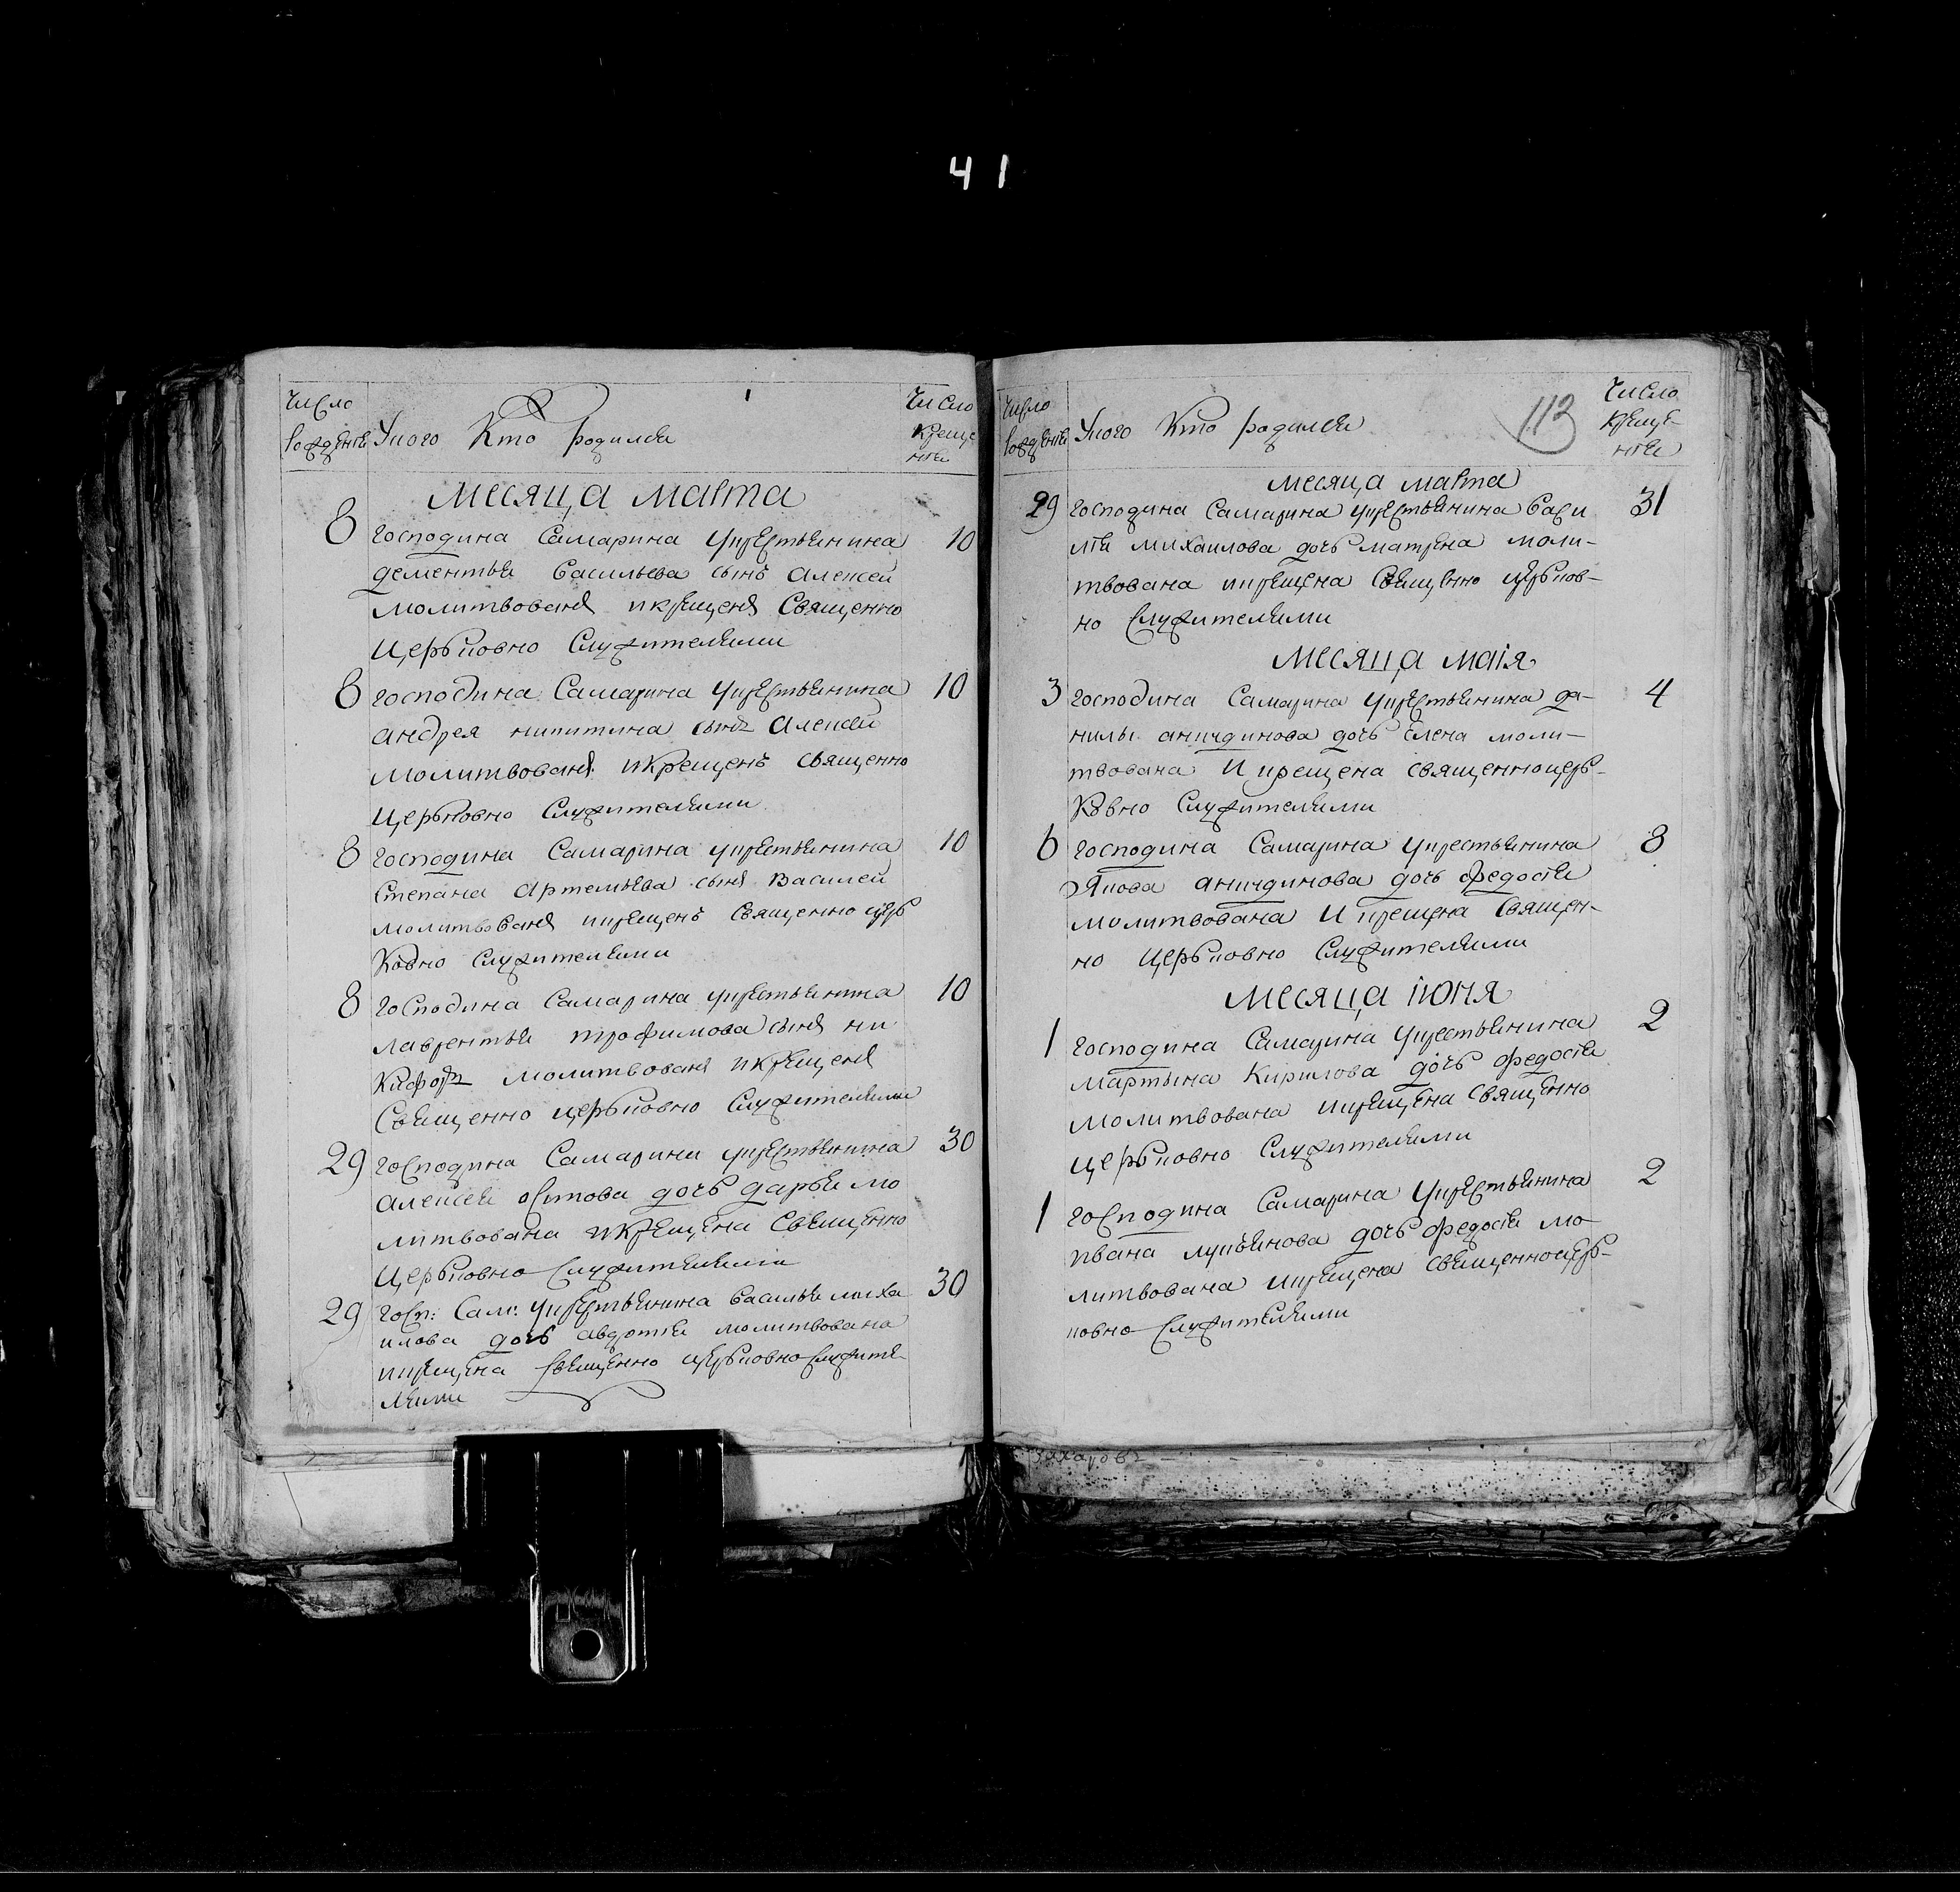 41
Число рожденiя
У кого Кто родился
Число крещенiя
месяца марта
8 господина Самарина укрестьянина 10
дементья Васильева сынъ алексей
молитвованъ икрещенъ Священно
Церьковно Служителями
8 господина Самарина укрестьянина 10
андрея никитина сынъ алексей
молитвованъ икрещенъ священно
Церьковно Служителями
8 господина Самарина укрестьянина 10
Степана артемьева сынъ василей
молитвованъ икрещенъ Священно церь
Ковно Служителями
8 господина Самарина укрестьянина 10
лаврентья трофимова сынъ ни
кифоръ молитвованъ икрещенъ
Священно церьковно Служителями
29 господина Самарина укрестьянина 30
алексея осипова дочь дарья мо
литвована икрещена Священно
Церьковно Служителями
29 госп: Сам: укрестьянина василья миха 30
илова дочь авдотья молитвована
икрещена Священно церьковно Служите-
лями
Число рожденiя
У кого Кто родился
113
Число креще-
нiя
месяца марта
29 господина Самарина укрестьянина васи 31
лiя михаилова дочь матрена моли-
твована икрещена Священно церьков-
но Служителями
месяца маiя
3 господина Самарина укрестьянина да- 4
нилы дочь Елена моли-
твована И крещена священноцерь-
Ковно Служителями
6 господина Самарина укрестьянина 8
Якова дочь федосья
молитвована И крещена Священ-
но Церьковно Служителями
месяца iюня
1 господина Самарина укрестьянина 2
мартына Кирилова дочь федосья
молитвована икрещена Священно
церьковно Служителями
1 господина Самарина укрестьянина 2
ивана лукьянова дочь федосья мо
литвована икрещена Священноцерь-
ковно Служителями
захаровъ